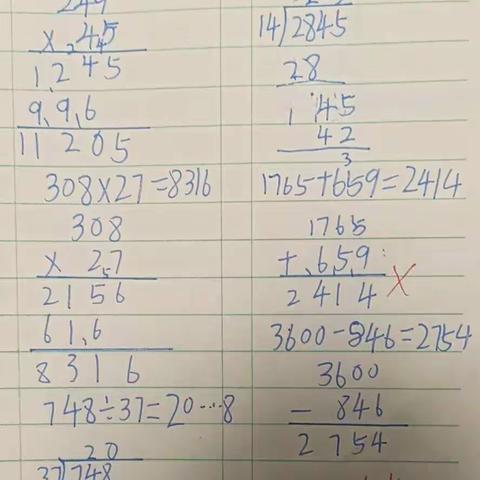 249
× 45
1245
996
11205
308×27=8316
308
× 27
2156
616
8316
748÷37=20…8
20
37 748
14 2845
28
1 45
42
3
1765+659=2414
1765
+ 659
2414
3600-846=2754
3600
- 846
2754